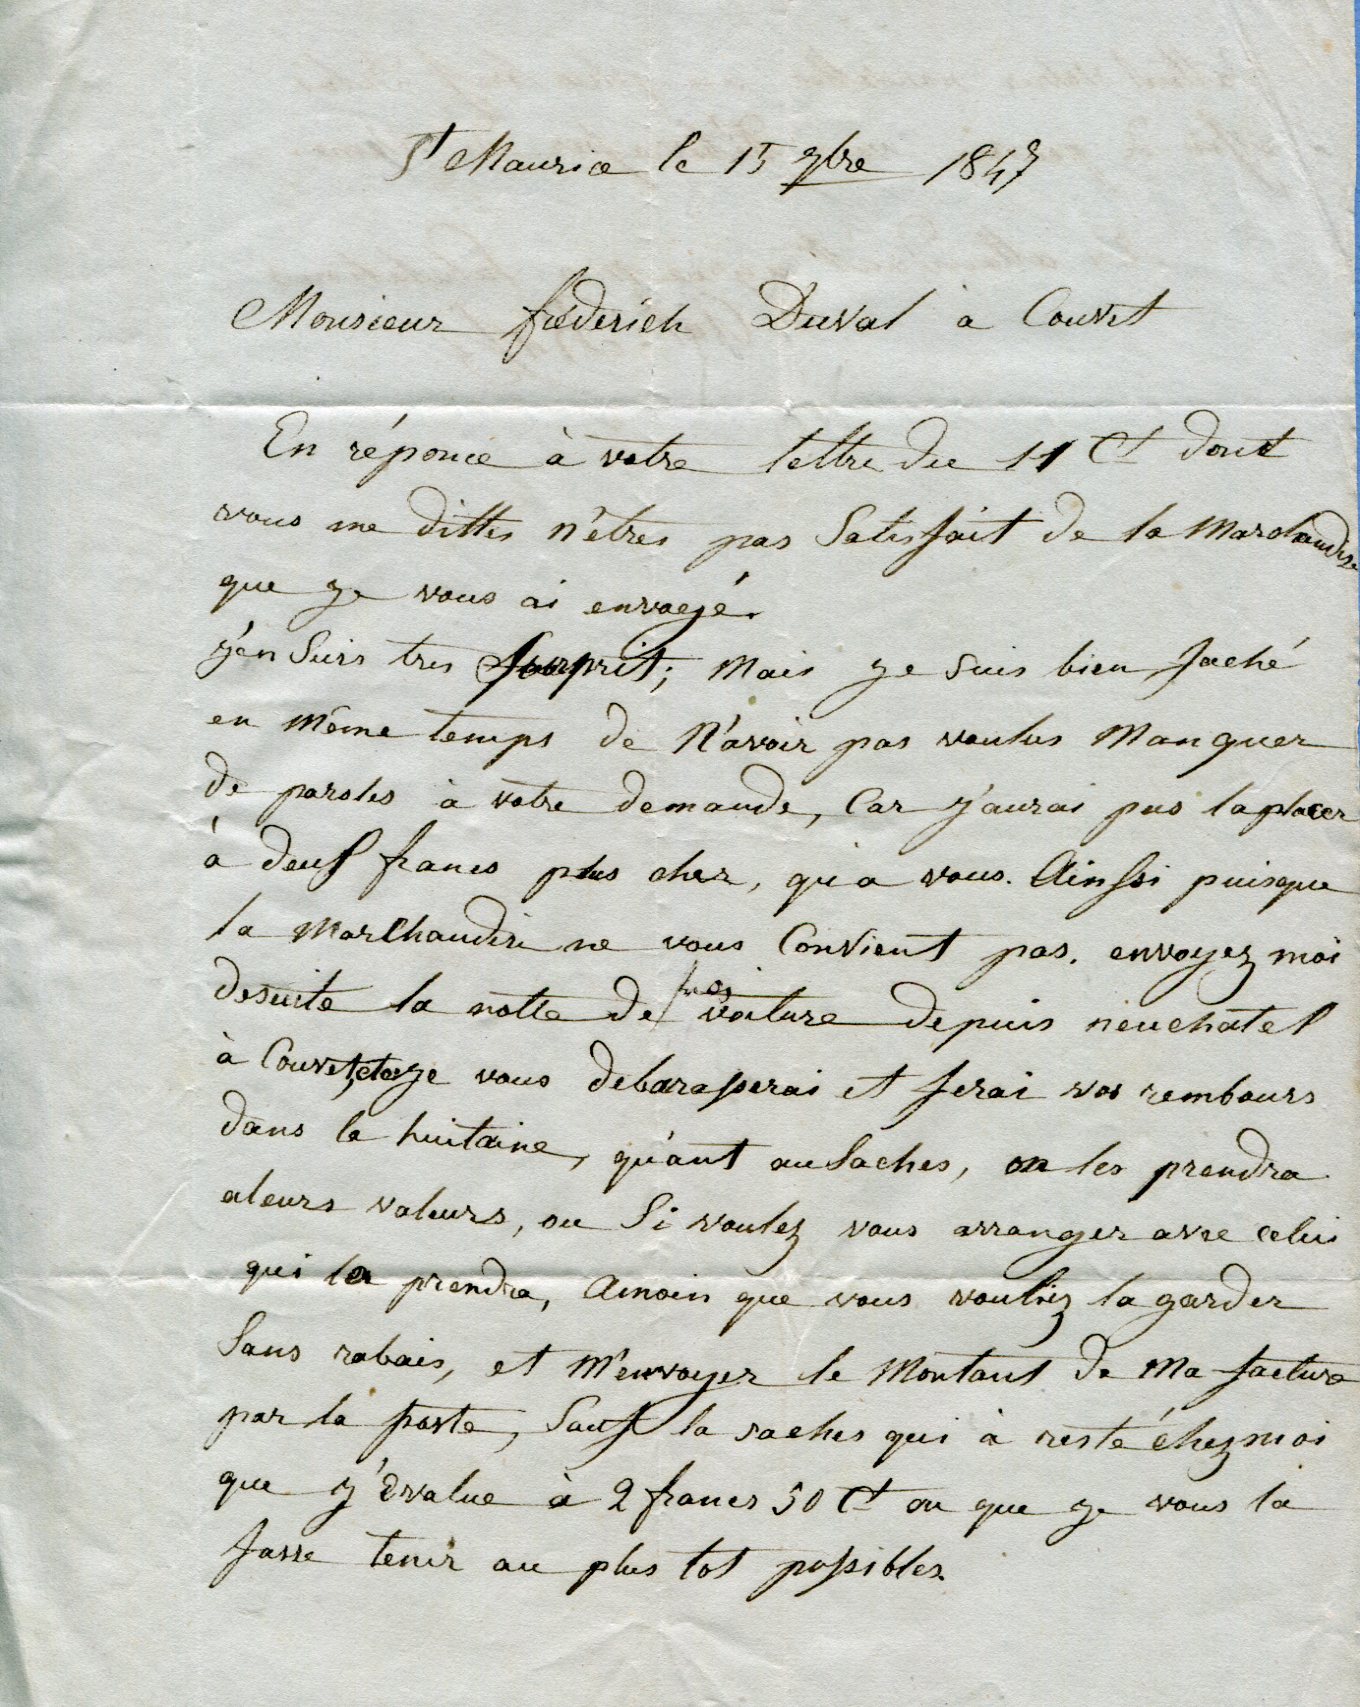 St Maurice le 15 7bre 1847
Monsieur fréderich Duval à Couvet
En réponce à votre lettre du 11 Ct dont
vous me dittes n'êtres pas Satisfait de la Marchandise
que je vous ai envoyé.
j'en Suis tres Surprit; Mais je suis bien faché
en Même temps de N'avoir pas voulus Manquer
de paroles à votre demande, Car j'aurai pus la placer
à deuf francs plus cher, qu'a vous. Ainssi puisque
la Marchandise ne vous Convient pas. envoyez moi
desuite la notte de frai voiture depuis neuchatel
à Couvet, et je vous debarasserai et ferai vos rembours
dans la huitaine, qu'ant au Saches, on les prendra
aleurs valeurs, ou Si voulez vous arranger avec celui
qui la prendra, Amoin que vous vouliez la garder
Sans rabais, et M'envoyer le Montant de Ma facture
par la poste, Sauf la saches qui à resté chez moi
que j'évalue à 2 francs 50 Ct ou que je vous la
fasse tenir au plus tot possibles.